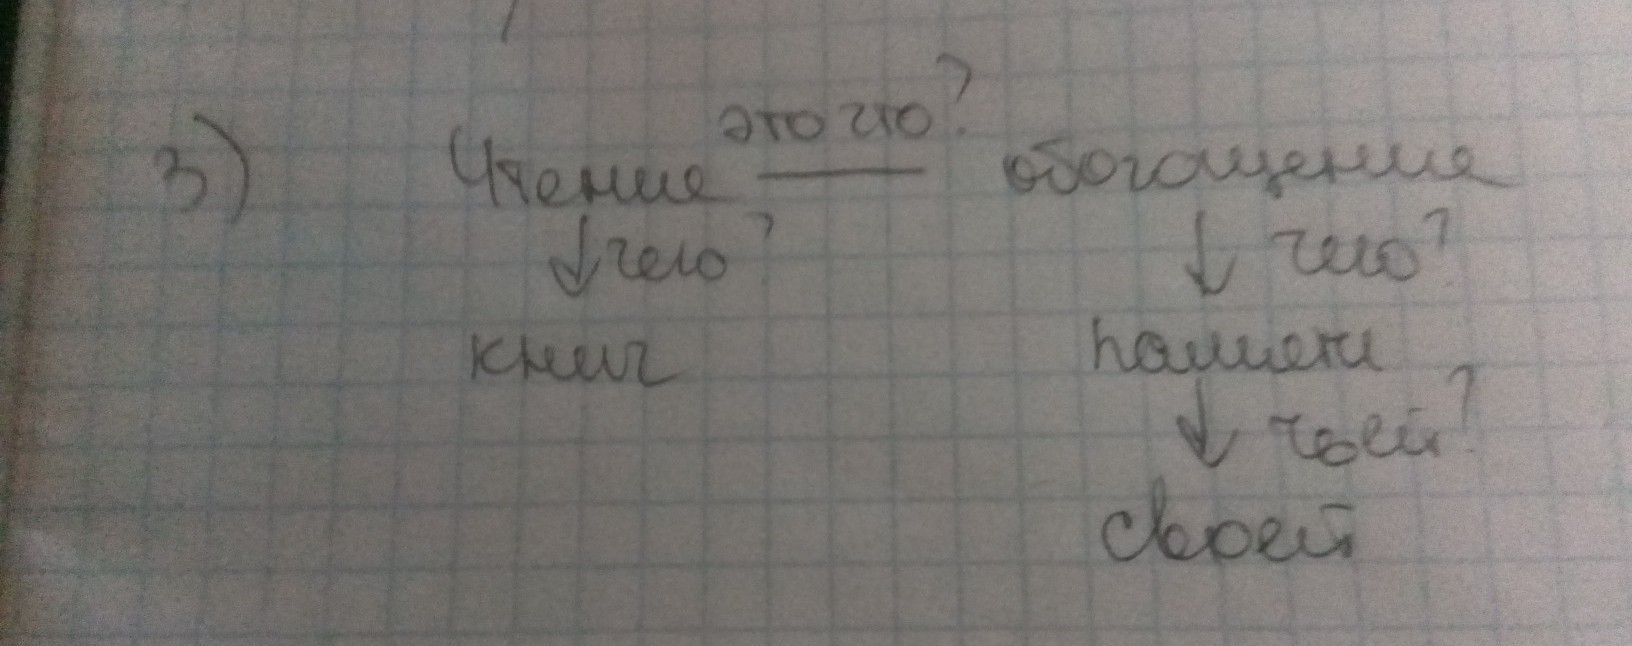 это что?
3) Чтение — обогащение
↓ чего? ↓ чего?
книг памяти
↓ чьей?
своей